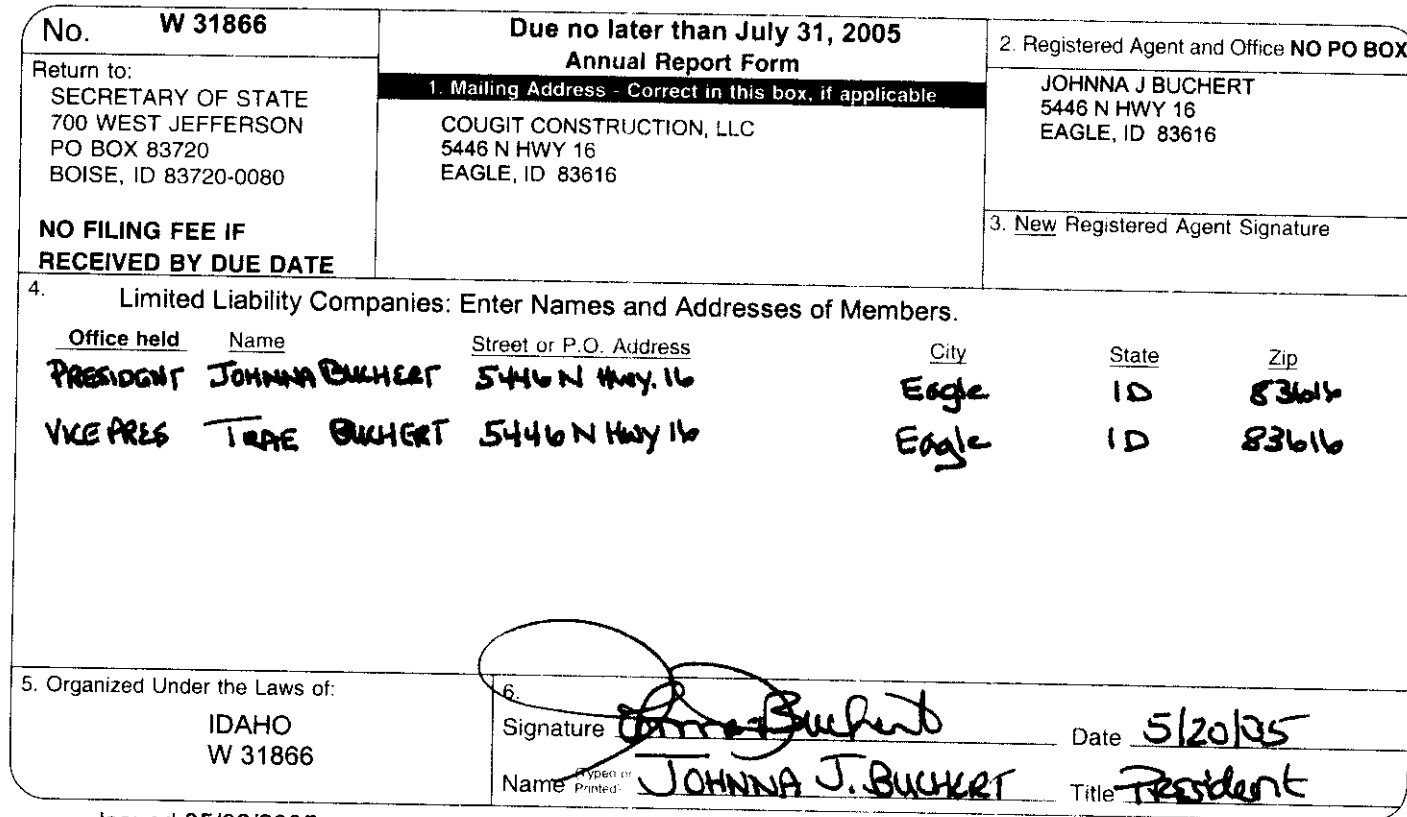 No. W 31866
Return to:
SECRETARY OF STATE
700 WEST JEFFERSON
PO BOX 83720
BOISE, ID 83720-0080
NO FILING FEE IF
RECEIVED BY DUE DATE
Due no later than July 31, 2005
Annual Report Form
1. Mailing Address - Correct in this box, if applicable
COUGIT CONSTRUCTION, LLC
5446 N HWY 16
EAGLE, ID 83616
2. Registered Agent and Office NO PO BOX
JOHNNA J BUCHERT
5446 N HWY 16
EAGLE, ID 83616
3. New Registered Agent Signature
4. Limited Liability Companies: Enter Names and Addresses of Members.
Office held Name Street or P.O. Address City State Zip
PRESIDENT JOHNNA BUCHERT 5446 N Hwy. 16 Eagle ID 83616
VICE PRES TRAE BUCHERT 5446 N Hwy 16 Eagle ID 83616
5. Organized Under the Laws of:
IDAHO
W 31866
6.
Signature Buchert Date 5/20/05
Name (Typed or Printed) JOHNNA J. BUCHERT Title President